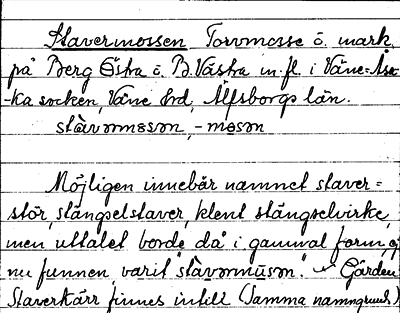 Stavermossen Torvmosse ö. mark
på Berg Östra ö. B. Västra m.fl. i Väne-Åsa-
-ka socken, Väne hd, Älfsborgs län.
stàvərmøsən, -møsən
Möjligen innebär namnet staver =
stör, stängselstaver, klent stängselvirke,
men uttalet borde då i gammal form, ej
nu funnen, varit "stàvərmùsən". Gården
Staverkärr finnes intill (Samma namngrund)